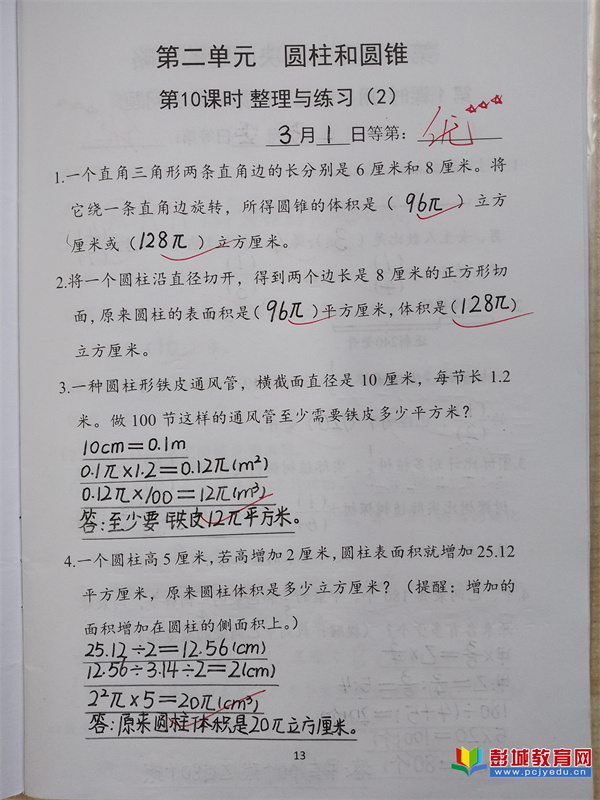 第二单元 圆柱和圆锥
第10课时 整理与练习（2）
3月1日等第：优
1.一个直角三角形两条直角边的长分别是 6 厘米和 8 厘米。将
它绕一条直角边旋转，所得圆锥的体积是（ 96π ）立方
厘米或（128π ）立方厘米。
2.将一个圆柱沿直径切开，得到两个边长是 8 厘米的正方形切
面，原来圆柱的表面积是（ 96π ）平方厘米，体积是（128π）
立方厘米。
3.一种圆柱形铁皮通风管，横截面直径是 10 厘米，每节长 1.2
米。做 100 节这样的通风管至少需要铁皮多少平方米？
10cm=0.1m
0.1π×1.2=0.12π(m²)
0.12π×100=12π(m³)
答：至少要铁皮12π平方米。
4.一个圆柱高 5 厘米，若高增加 2 厘米，圆柱表面积就增加 25.12
平方厘米，原来圆柱体积是多少立方厘米？（提醒：增加的
面积增加在圆柱的侧面积上。）
25.12÷2=12.56(cm)
12.56÷3.14÷2=2(cm)
2²π×5=20π(cm³)
答：原来圆柱体积是20π立方厘米。
13
彭城教育网
www.pcjyedu.cn